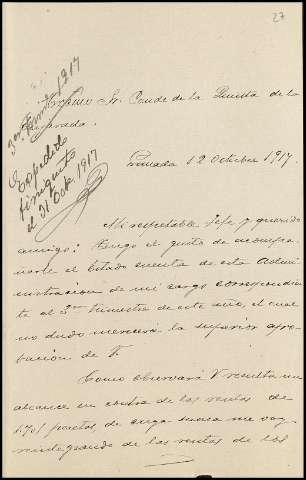 27
3er Trimtre 1917
Expedido
finiquito
el 31 Octe. 1917
Excmo Sr. Conde de la Quinta de la
Enjarada.
Granada 12 Octubre 1917.
Mi respetable Jefe y querido
amigo: Tengo el gusto de acompa-
ñarle el Estado cuenta de esta Admi-
nistracion de mi cargo correspondien-
te al 3er trimestre de este año, el cual
no dudo merecerá la superior apro-
bacion de V.
Como observará V resulta un
alcance en contra de las rentas de
1.701 pesetas, de cuya suma me voy
reintegrando de las rentas de los